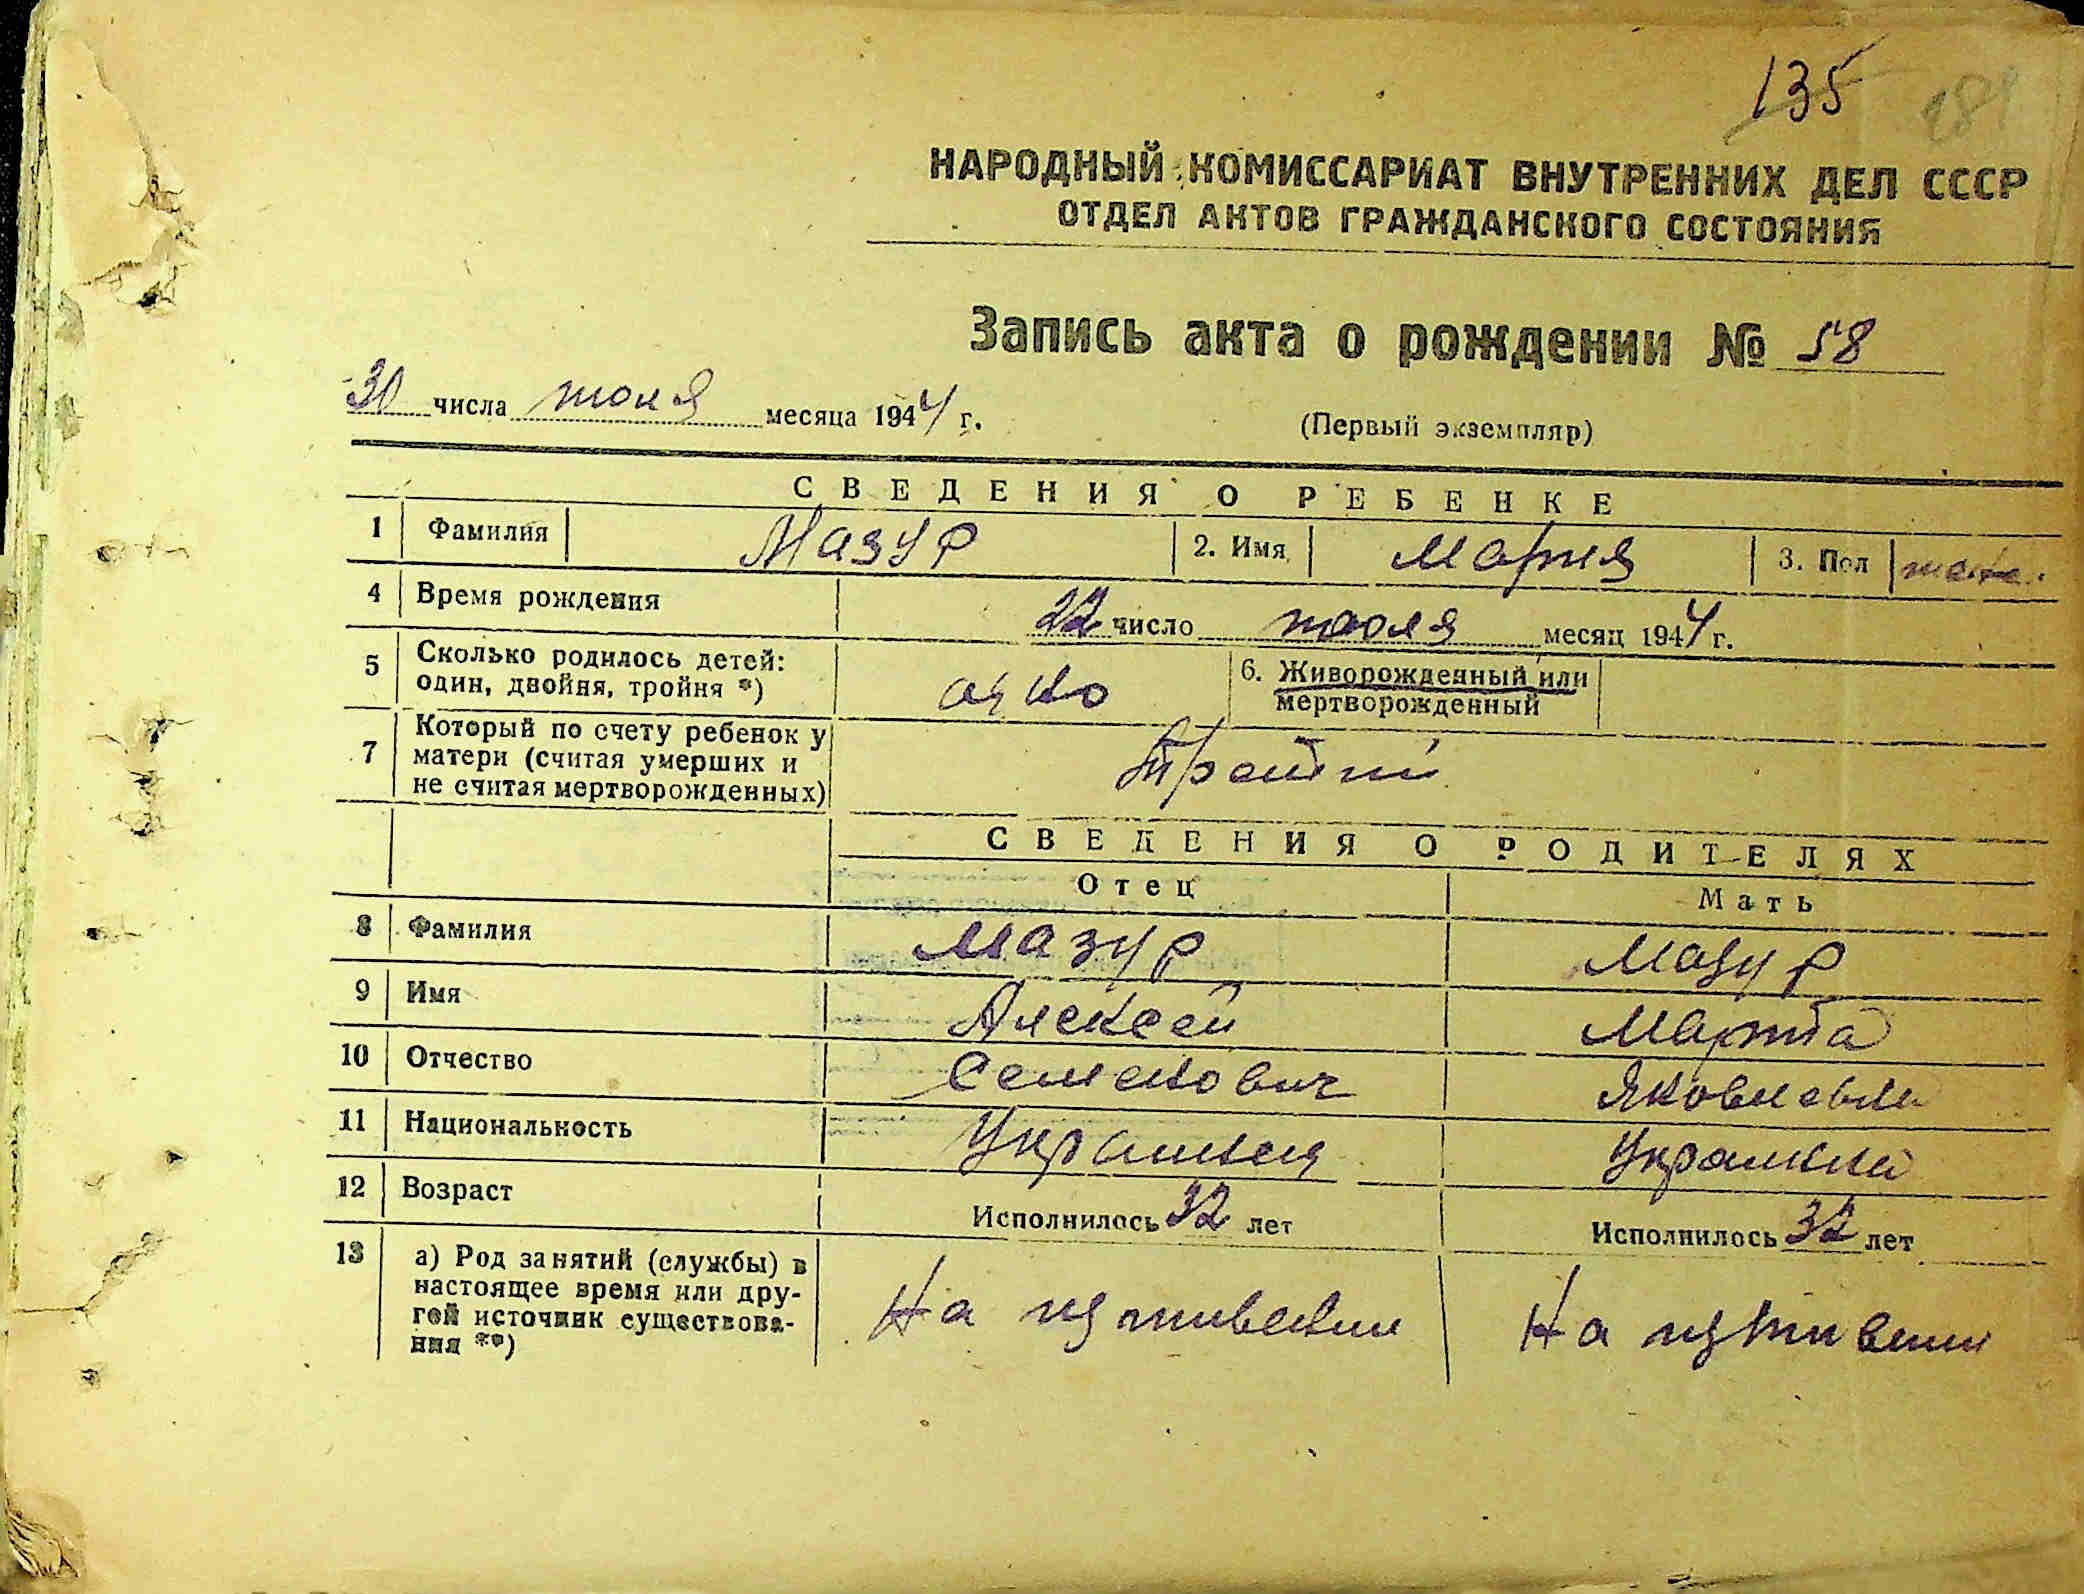 135
НАРОДНЫЙ КОМИССАРИАТ ВНУТРЕННИХ ДЕЛ СССР
ОТДЕЛ АКТОВ ГРАЖДАНСКОГО СОСТОЯНИЯ
Запись акта о рождении № 58
30 числа июля месяца 1944 г.
(Первый экземпляр)
СВЕДЕНИЯ О РЕБЕНКЕ
1 Фамилия Мазур 2. Имя Мария 3. Пол
4 Время рождения 22 число июля месяц 1944 г.
5 Сколько родилось детей: один, двойня, тройня *) одно 6. Живорожденный или мертворожденный
7 Который по счету ребенок у матери (считая умерших и не считая мертворожденных)
СВЕДЕНИЯ О РОДИТЕЛЯХ
Отец Мать
8 Фамилия Мазур Мазур
9 Имя Алексей Марта
10 Отчество Семенович Яковлевна
11 Национальность
12 Возраст Исполнилось 32 лет Исполнилось 32 лет
13 а) Род занятий (службы) в настоящее время или другой источник существования **) На иждивении На иждивении